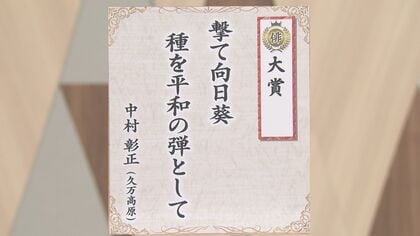 俳
大賞
撃て向日葵
種を平和の弾として
中村 彰正(久万高原)